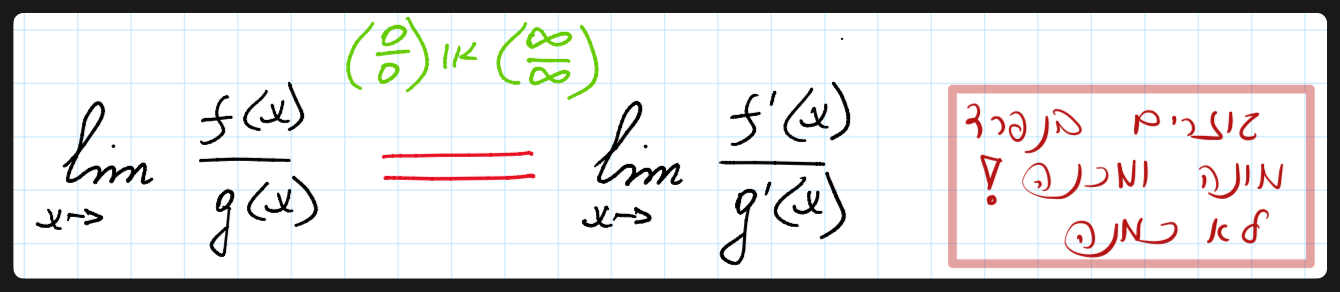 lim x→ f(x)/g(x) = (0/0) או (∞/∞) lim x→ f'(x)/g'(x)
גוזרים בנפרד
מונה ומכנה!
לא כמנה